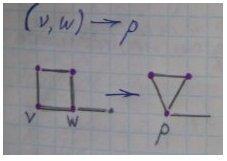 (v, w) → p
v w p